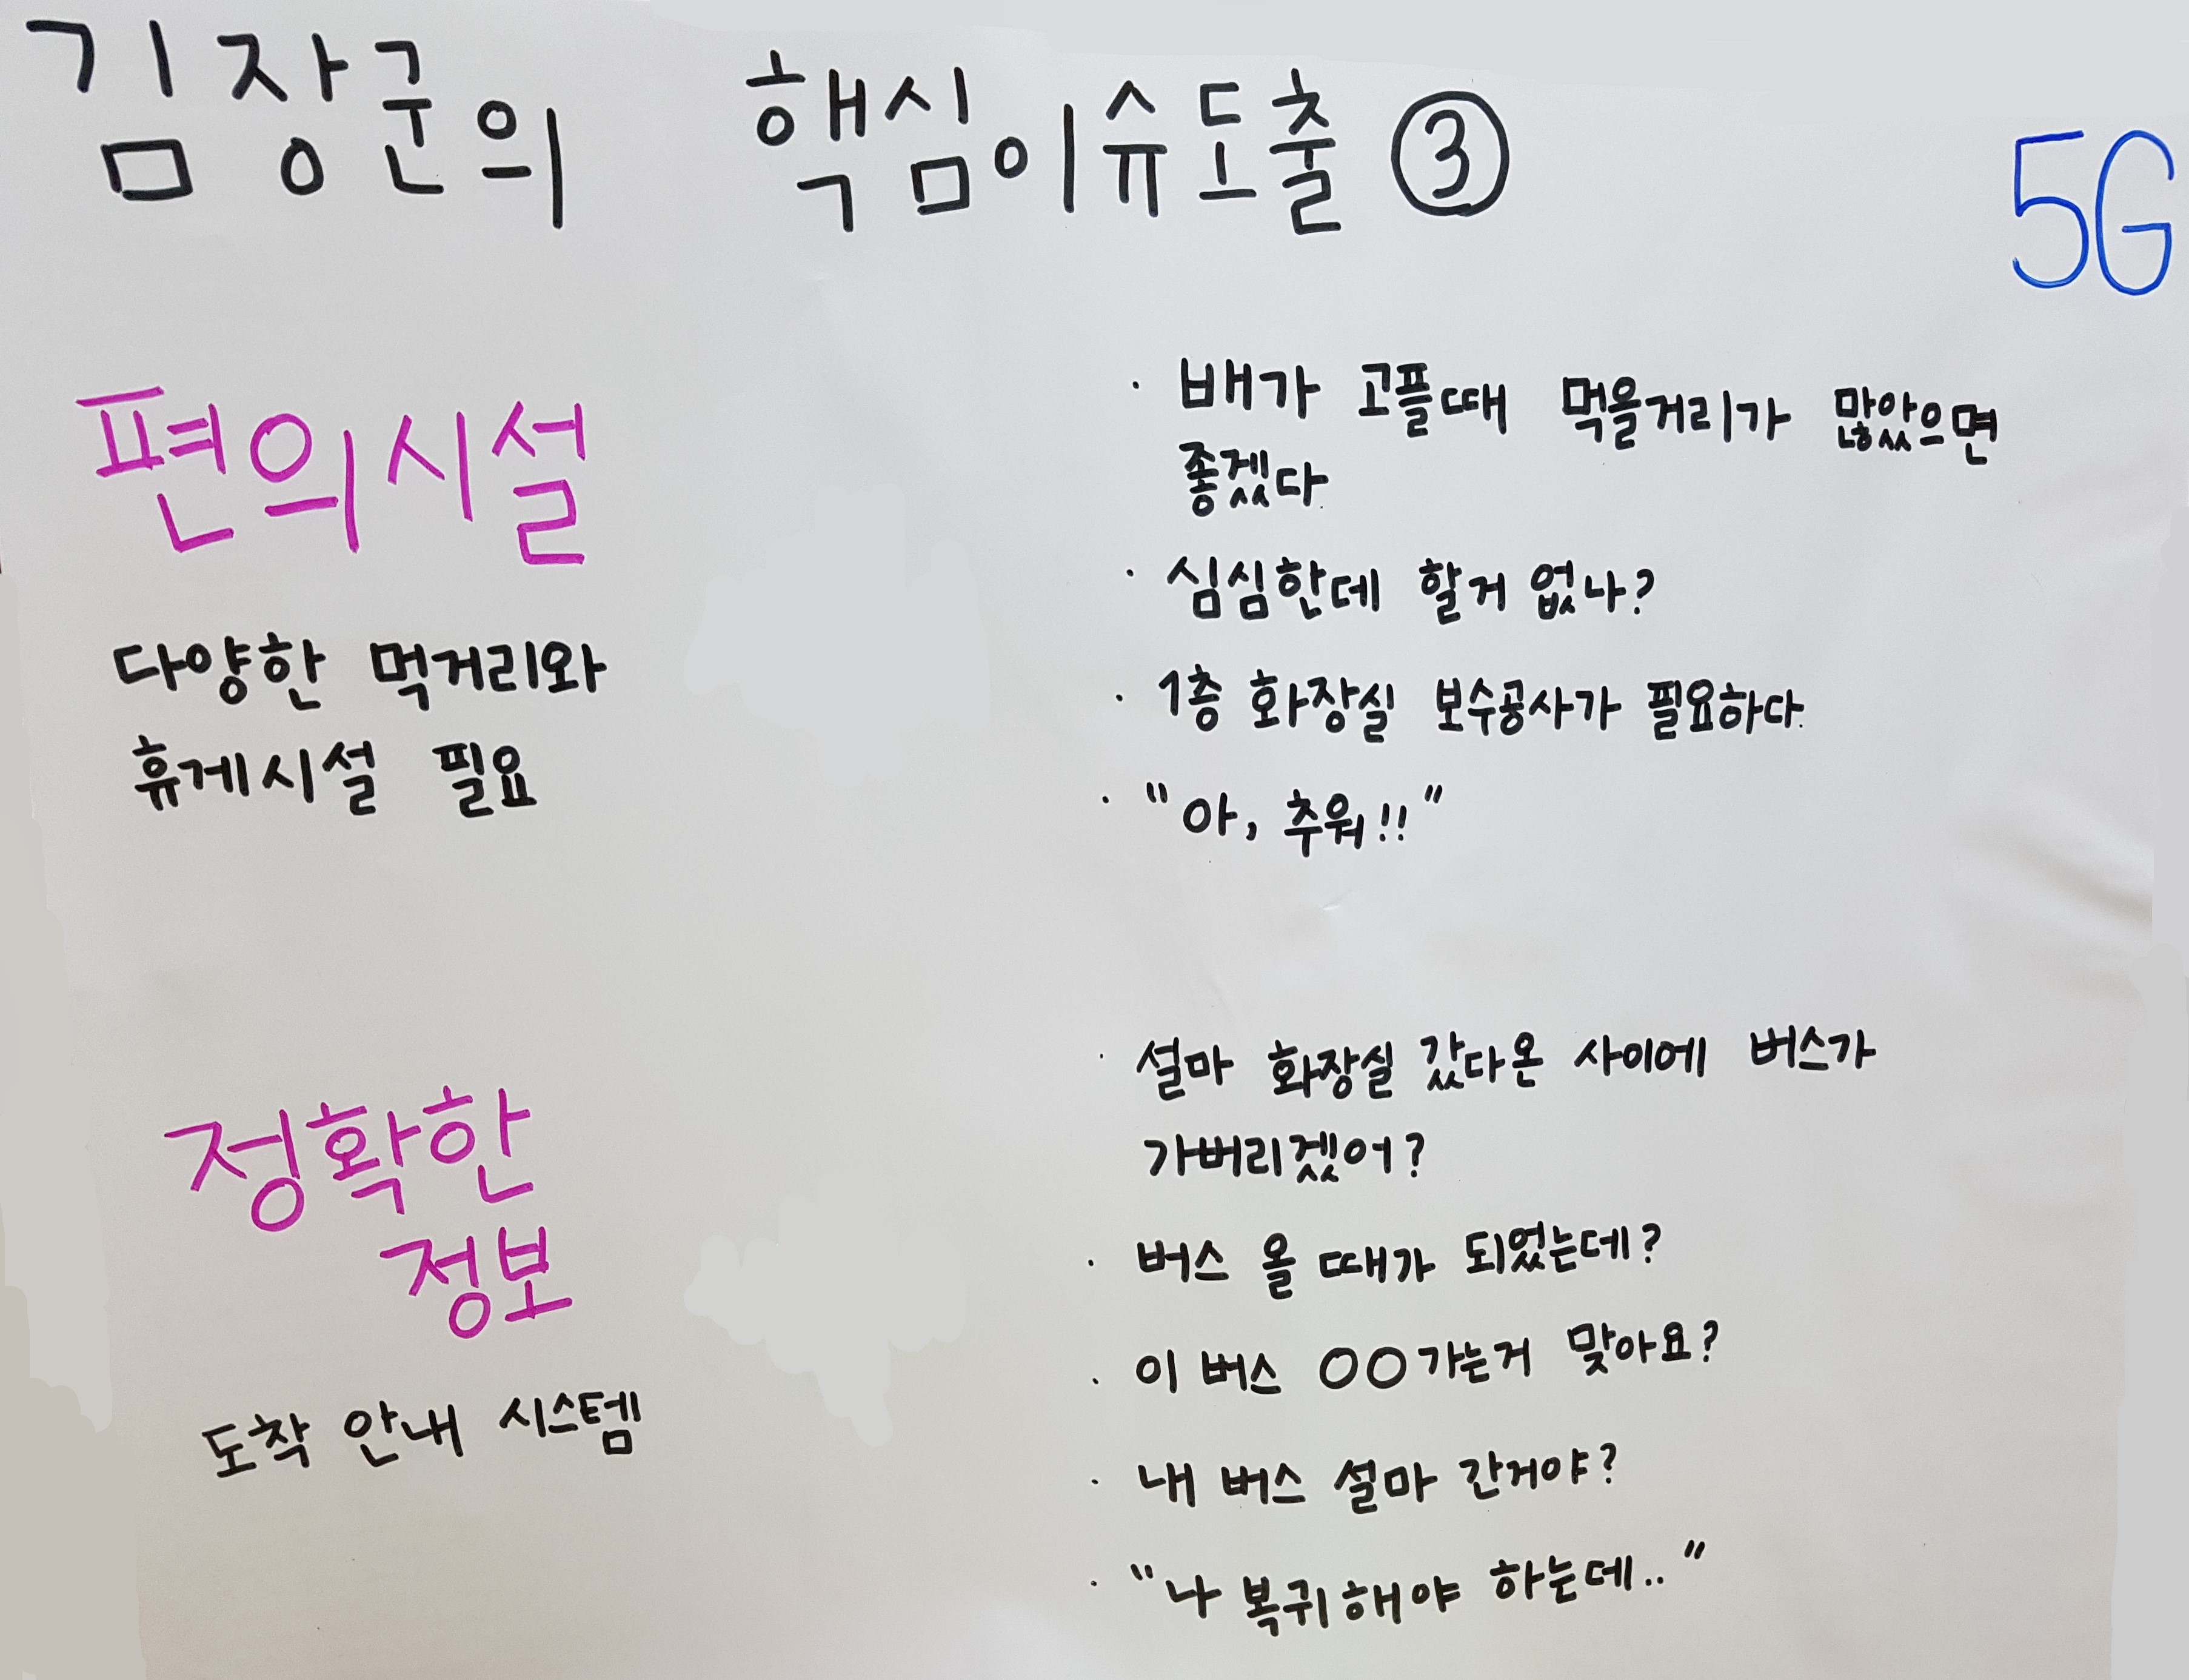 김장군의 핵심이슈도출 ③
5G
편의시설
다양한 먹거리와
휴게시설 필요
· 배가 고플때 먹을거리가 많았으면
좋겠다.
· 심심한데 할거 없나?
· 1층 화장실 보수공사가 필요하다.
· "아, 추워!!"
정확한
정보
도착 안내 시스템
· 설마 화장실 갔다온 사이에 버스가
가버리겠어?
· 버스 올 때가 되었는데?
· 이 버스 OO가는거 맞아요?
· 내 버스 설마 간거야?
· "나 복귀해야 하는데.."